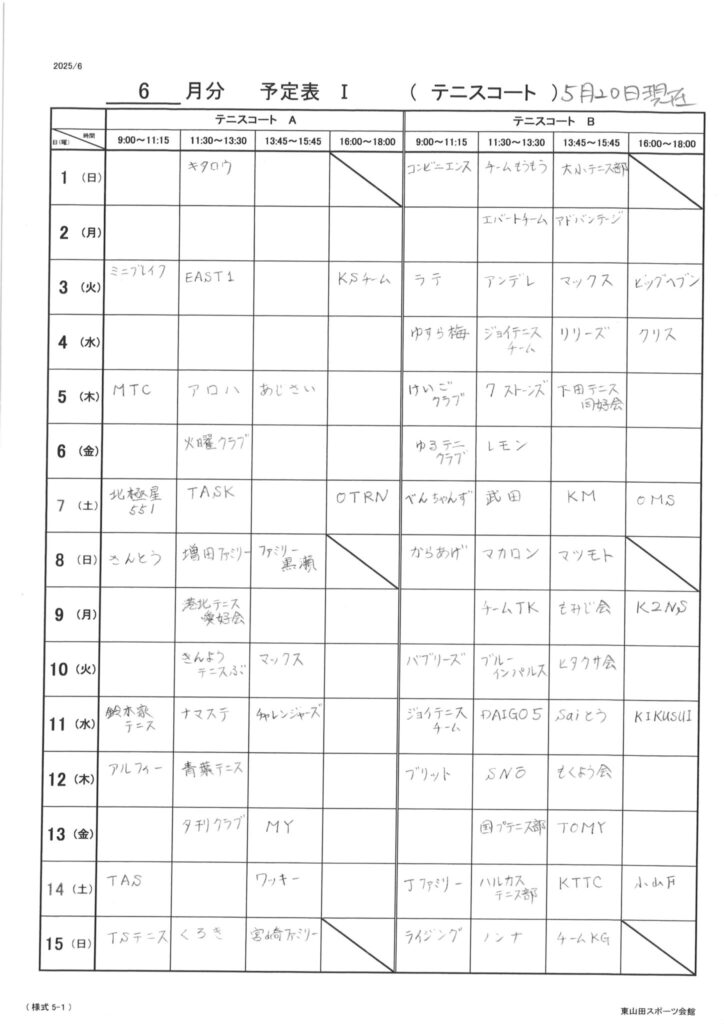 2025/6
6 月分 予定表 Ⅰ ( テニスコート ) 5月20日現在
テニスコート A テニスコート B
時間
日(曜) 9:00〜11:15 11:30〜13:30 13:45〜15:45 16:00〜18:00 9:00〜11:15 11:30〜13:30 13:45〜15:45 16:00〜18:00
1 (日) キタロウ コンビニエンス チームもうもう 大小テニス部
2 (月) エバートチーム アドバンテージ
3 (火) ミニブレイク EAST1 KSチーム ラテ アンデレ マックス ビッグヘブン
4 (水) ゆすら梅 ジョイテニス リリーズ クリス
チーム
5 (木) MTC アロハ あじさい けいご 7ストーンズ 下田テニス
クラブ 同好会
6 (金) 火曜クラブ ゆるテニ レモン
クラブ
7 (土) 北極星 TASK OTRN べんちゃんず 武田 KM OMS
551
8 (日) さんとう 増田ファミリー ファミリー からあげ マカロン マツモト
黒瀬
9 (月) 港北テニス チームTK もみじ会 K2N,S
愛好会
10 (火) きんよう マックス バブリーズ ブルー ヒタクサ会
テニスぶ インパルス
11 (水) 鈴木家 ナマステ チャレンジャーズ ジョイテニス DAIGO5 Saiとう KIKUSUI
テニス チーム
12 (木) アルフィー 青葉テニス ブリット SNO もくよう会
13 (金) タチリクラブ MY 国プテニス部 TOMY
14 (土) TAS ワッキー Jファミリー ハルカス KTTC
テニス部
15 (日) TSテニス くろき 宮崎ファミリー ライジング ノンナ チームKG
(様式 5-1) 東山田スポーツ会館